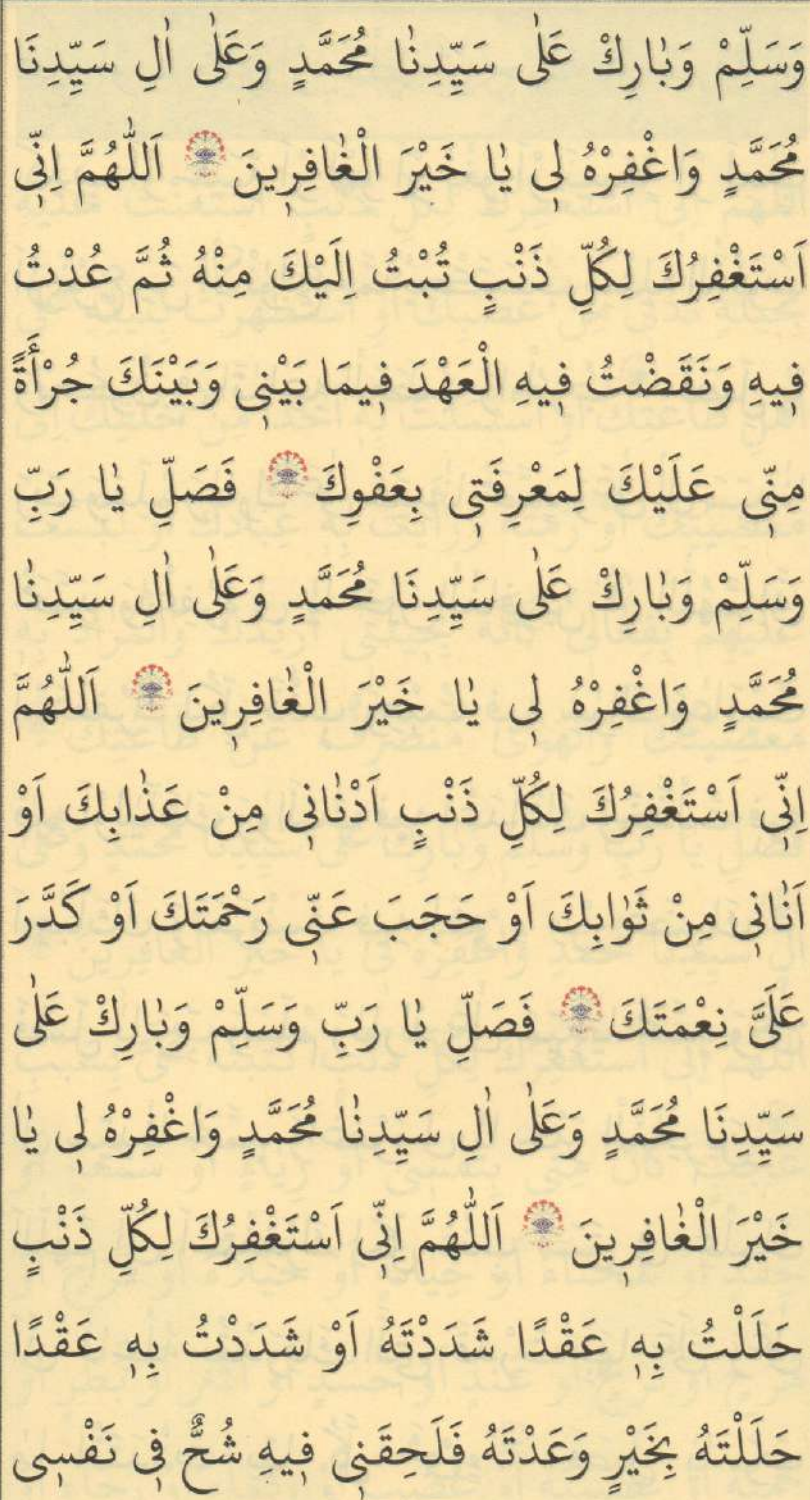 وَسَلِّمْ وَبٰارِكْ عَلٰى سَيِّدِنٰا مُحَمَّدٍ وَعَلٰى اٰلِ سَيِّدِنَا
مُحَمَّدٍ وَاغْفِرْهُ لٖى يٰا خَيْرَ الْغٰافِرٖينَ اَللّٰهُمَّ اِنّٖى
اَسْتَغْفِرُكَ لِكُلِّ ذَنْبٍ تُبْتُ اِلَيْكَ مِنْهُ ثُمَّ عُدْتُ
فٖيهِ وَنَقَضْتُ فٖيهِ الْعَهْدَ فٖيمَا بَيْنٖى وَبَيْنَكَ جُرْأَةً
مِنّٖى عَلَيْكَ لِمَعْرِفَتٖى بِعَفْوِكَ فَصَلِّ يٰا رَبِّ
وَسَلِّمْ وَبٰارِكْ عَلٰى سَيِّدِنَا مُحَمَّدٍ وَعَلٰى اٰلِ سَيِّدِنٰا
مُحَمَّدٍ وَاغْفِرْهُ لٖى يٰا خَيْرَ الْغٰافِرٖينَ اَللّٰهُمَّ
اِنّٖى اَسْتَغْفِرُكَ لِكُلِّ ذَنْبٍ اَدْنٰانٖى مِنْ عَذٰابِكَ اَوْ
اَنٰانٖى مِنْ ثَوٰابِكَ اَوْ حَجَبَ عَنّٖى رَحْمَتَكَ اَوْ كَدَّرَ
عَلَىَّ نِعْمَتَكَ فَصَلِّ يٰا رَبِّ وَسَلِّمْ وَبٰارِكْ عَلٰى
سَيِّدِنَا مُحَمَّدٍ وَعَلٰى اٰلِ سَيِّدِنٰا مُحَمَّدٍ وَاغْفِرْهُ لٖى يٰا
خَيْرَ الْغٰافِرٖينَ اَللّٰهُمَّ اِنّٖى اَسْتَغْفِرُكَ لِكُلِّ ذَنْبٍ
حَلَلْتُ بِهٖ عَقْدًا شَدَدْتَهُ اَوْ شَدَدْتُ بِهٖ عَقْدًا
حَلَلْتَهُ بِخَيْرٍ وَعَدْتَهُ فَلَحِقَنٖى فٖيهِ شُحٌّ فٖى نَفْسٖى